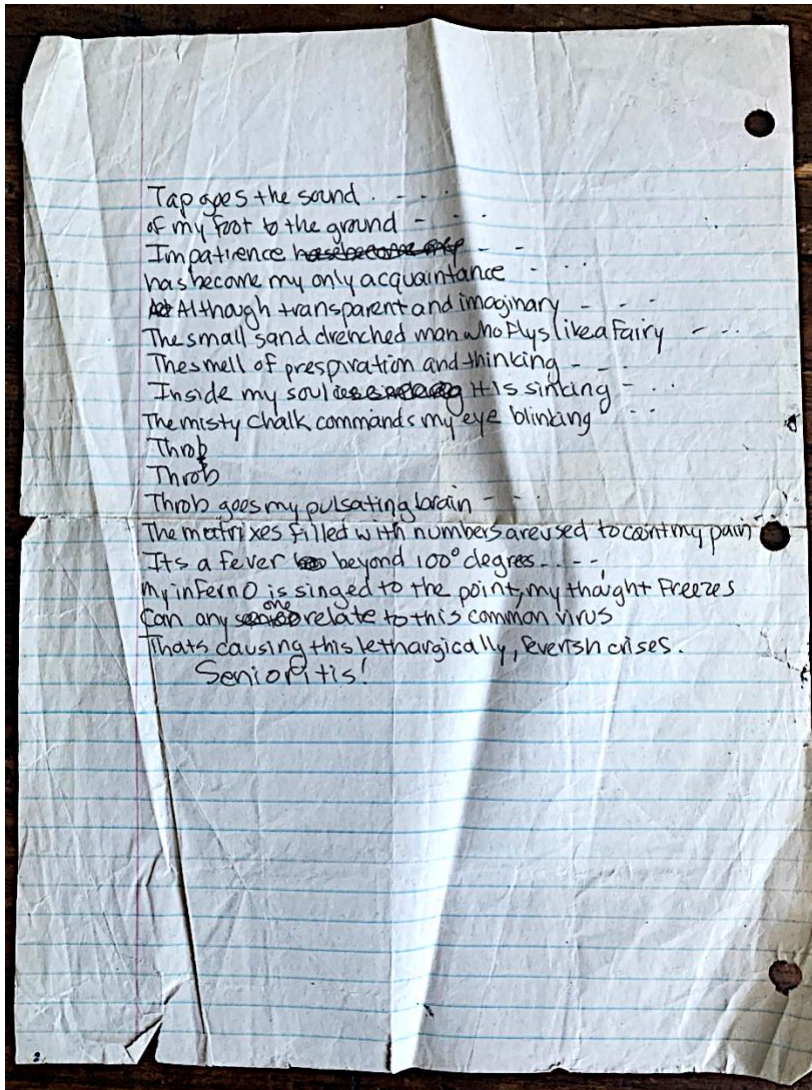 Tap goes the sound . - - . .
of my foot to the ground - - . .
Impatience - - .
has become my only acquaintance - . . .
Although transparent and imaginary - - - .
The small sand drenched man who flys like a fairy - - . .
The smell of prespiration and thinking - - .
Inside my soul it is sinking - . .
The misty chalk commands my eye blinking - . .
Throb
Throb
Throb goes my pulsating brain - - .
The matrixes filled with numbers are used to count my pain
Its a fever beyond 100° degres. . - - ,
My infernO is singed to the point, my thought freezes
Can any one relate to this common virus
Thats causing this lethargically, feverish crises.
Senioritis!
2